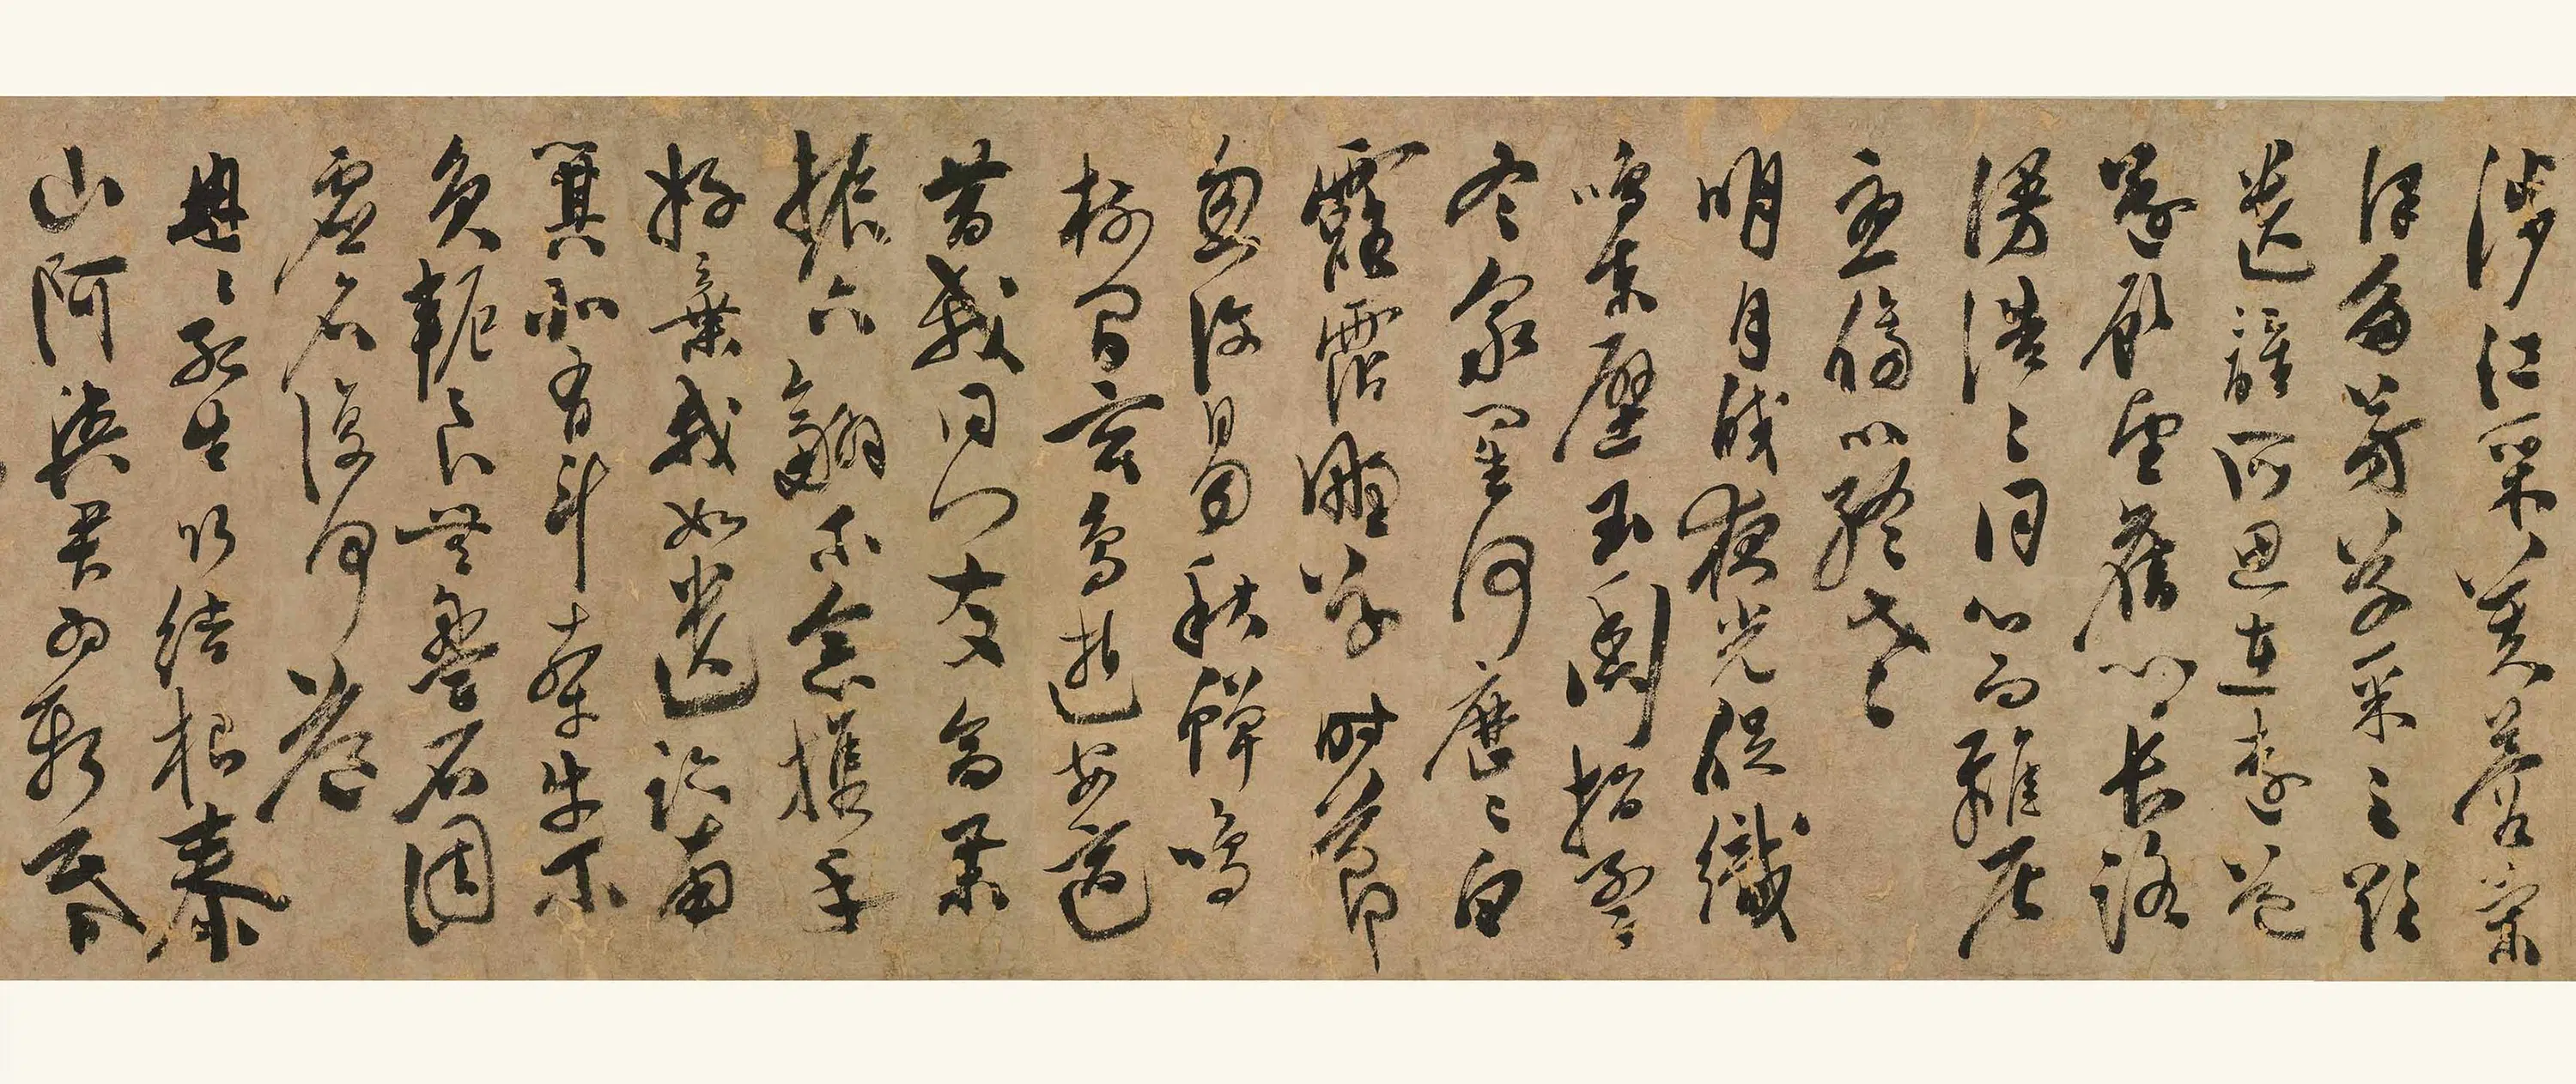 涉江采芙蓉蘭
澤多芳草采之欲
遺誰所思在遠道
還顧望舊鄉長路
漫浩〻同心而離居
憂傷以終老
明月皎夜光促織
鳴東壁玉衡指孟
冬衆星何歷〻白
露霑野草時節
忽復易秋蟬鳴
樹間玄鳥逝安適
昔我同門友高舉
振六翮不念攜手
好棄我如遺跡南
箕北有斗牽牛不
負軛良無盤石固
虛名復何益
冉〻孤生竹結根泰
山阿與君為新昏